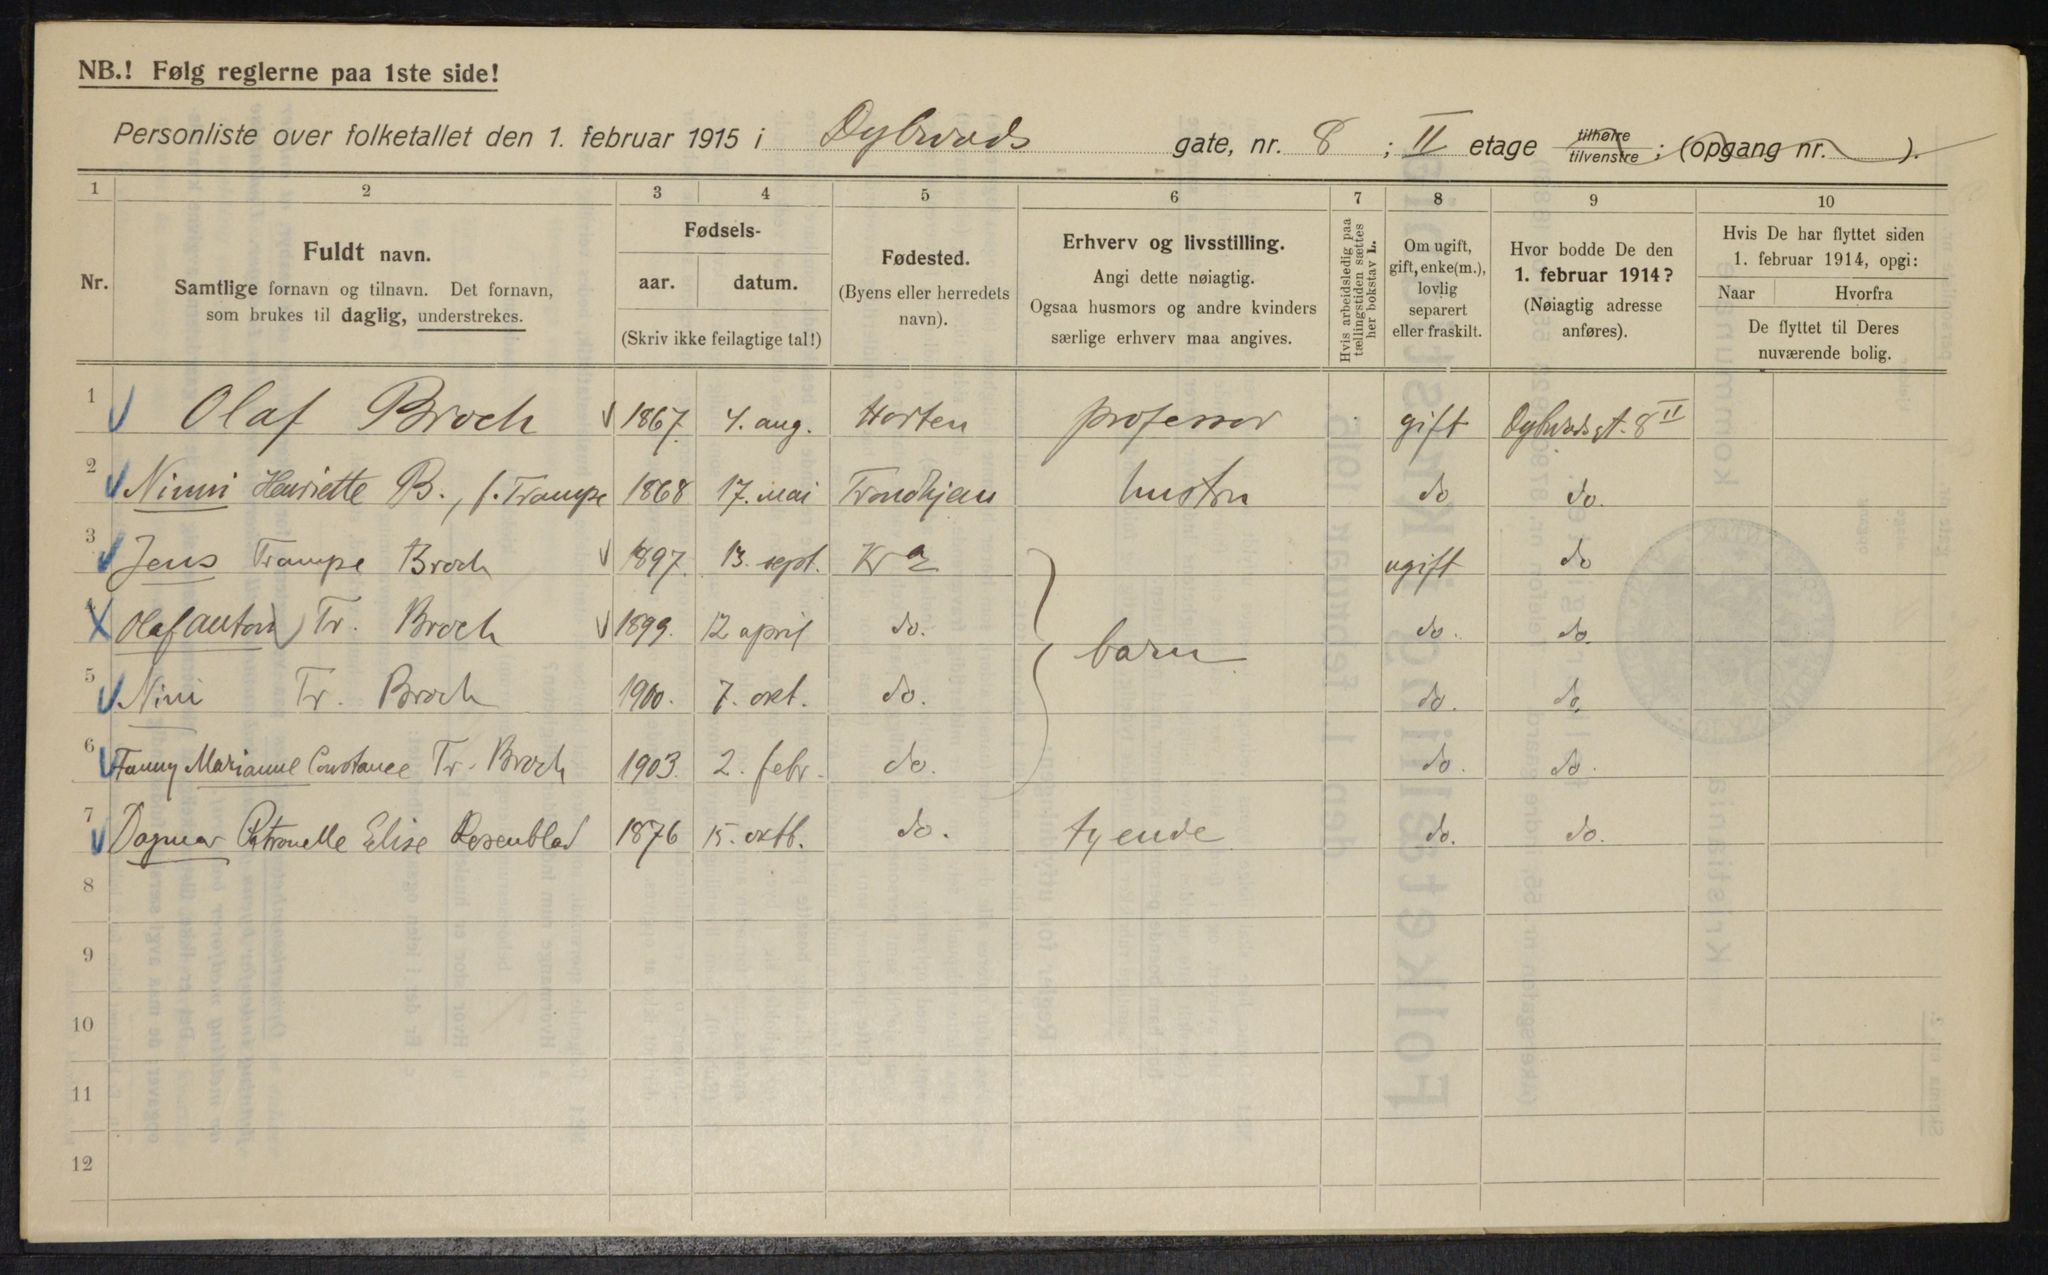 NB.! Følg reglerne paa 1ste side!
Personliste over folketallet den 1. februar 1915 i Dybwads gate, nr. 8 ; II etage tilhøire tilvenstre ; (opgang nr. ).
1 2 3 4 5 6 7 8 9 10
Nr.
Fuldt navn.
Samtlige fornavn og tilnavn. Det fornavn,
som brukes til daglig, understrekes.
Fødsels-
aar. datum.
(Skriv ikke feilagtige tal!)
Fødested.
(Byens eller herredets
navn).
Erhverv og livsstilling.
Angi dette nøiagtig.
Ogsaa husmors og andre kvinders
særlige erhverv maa angives.
Hvis arbeidsledig paa
tællingstiden sættes
her bokstav L.
Om ugift,
gift, enke(m.),
lovlig
separert
eller fraskilt.
Hvor bodde De den
1. februar 1914?
(Nøiagtig adresse
anføres).
Hvis De har flyttet siden
1. februar 1914, opgi:
Naar Hvorfra
De flyttet til Deres
nuværende bolig.
1 Olaf Broch 1867. 4. aug. Horten professor gift Dybwadsgt. 8 II
2 Ninni Henriette B., f. Trampe 1868 17. mai Trondhjem hustru do do.
3 Jens Trampe Broch 1897. 13. sept. Kra ugift do
4 Olaf Anton Tr. Broch 1899. 12 april do. barn do. do.
5 Nini Tr. Broch 1900. 7. okt. do. do. do.
6 Fanny Marianne Constance Tr. Broch 1903. 2. febr. do. do. do.
7 Dagmar Petronelle Elise Rosenblad 1876 15. oktb. do. tyende do. do.
8
9
10
11
12